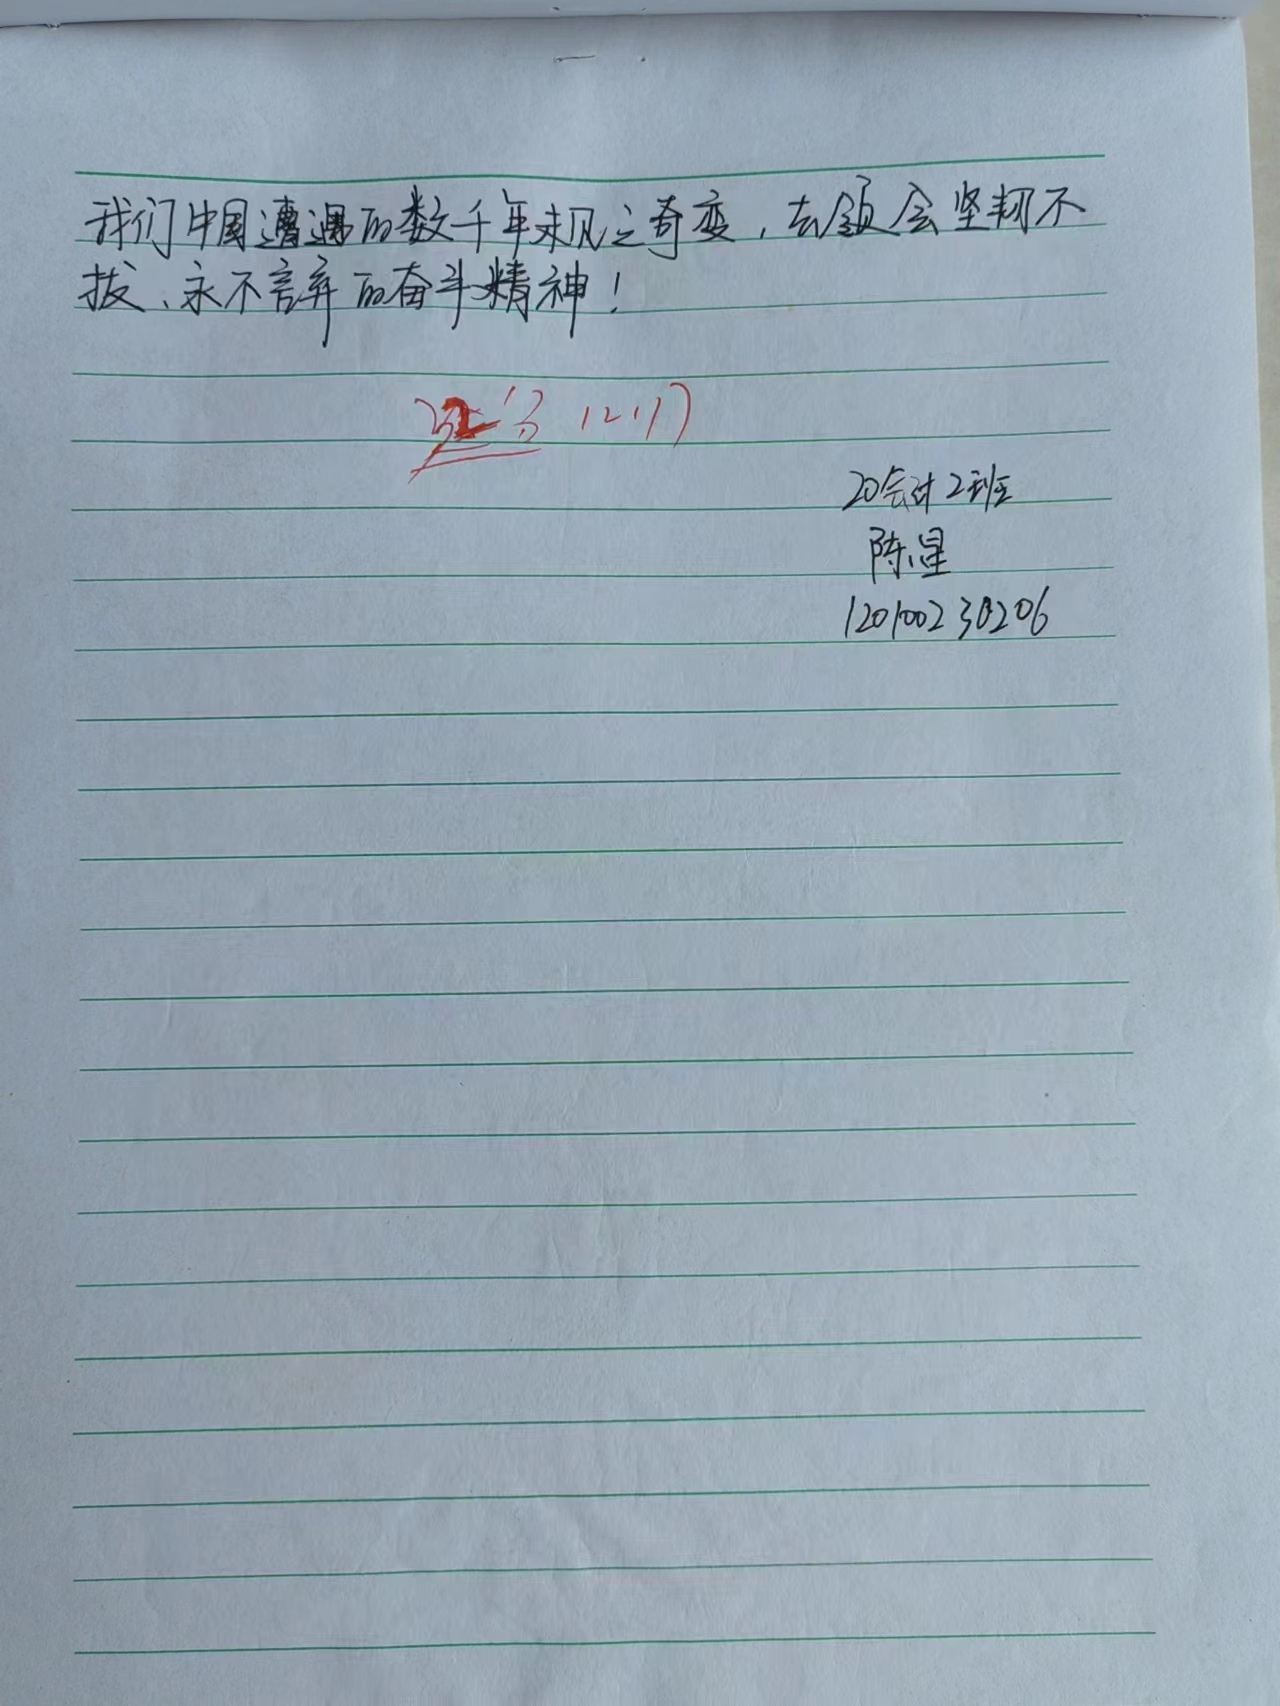 我们中国遭遇的数千年未见之奇变，去领会坚韧不
拔、永不言弃的奋斗精神！
12.17
20会计2班
陈星
120100230206